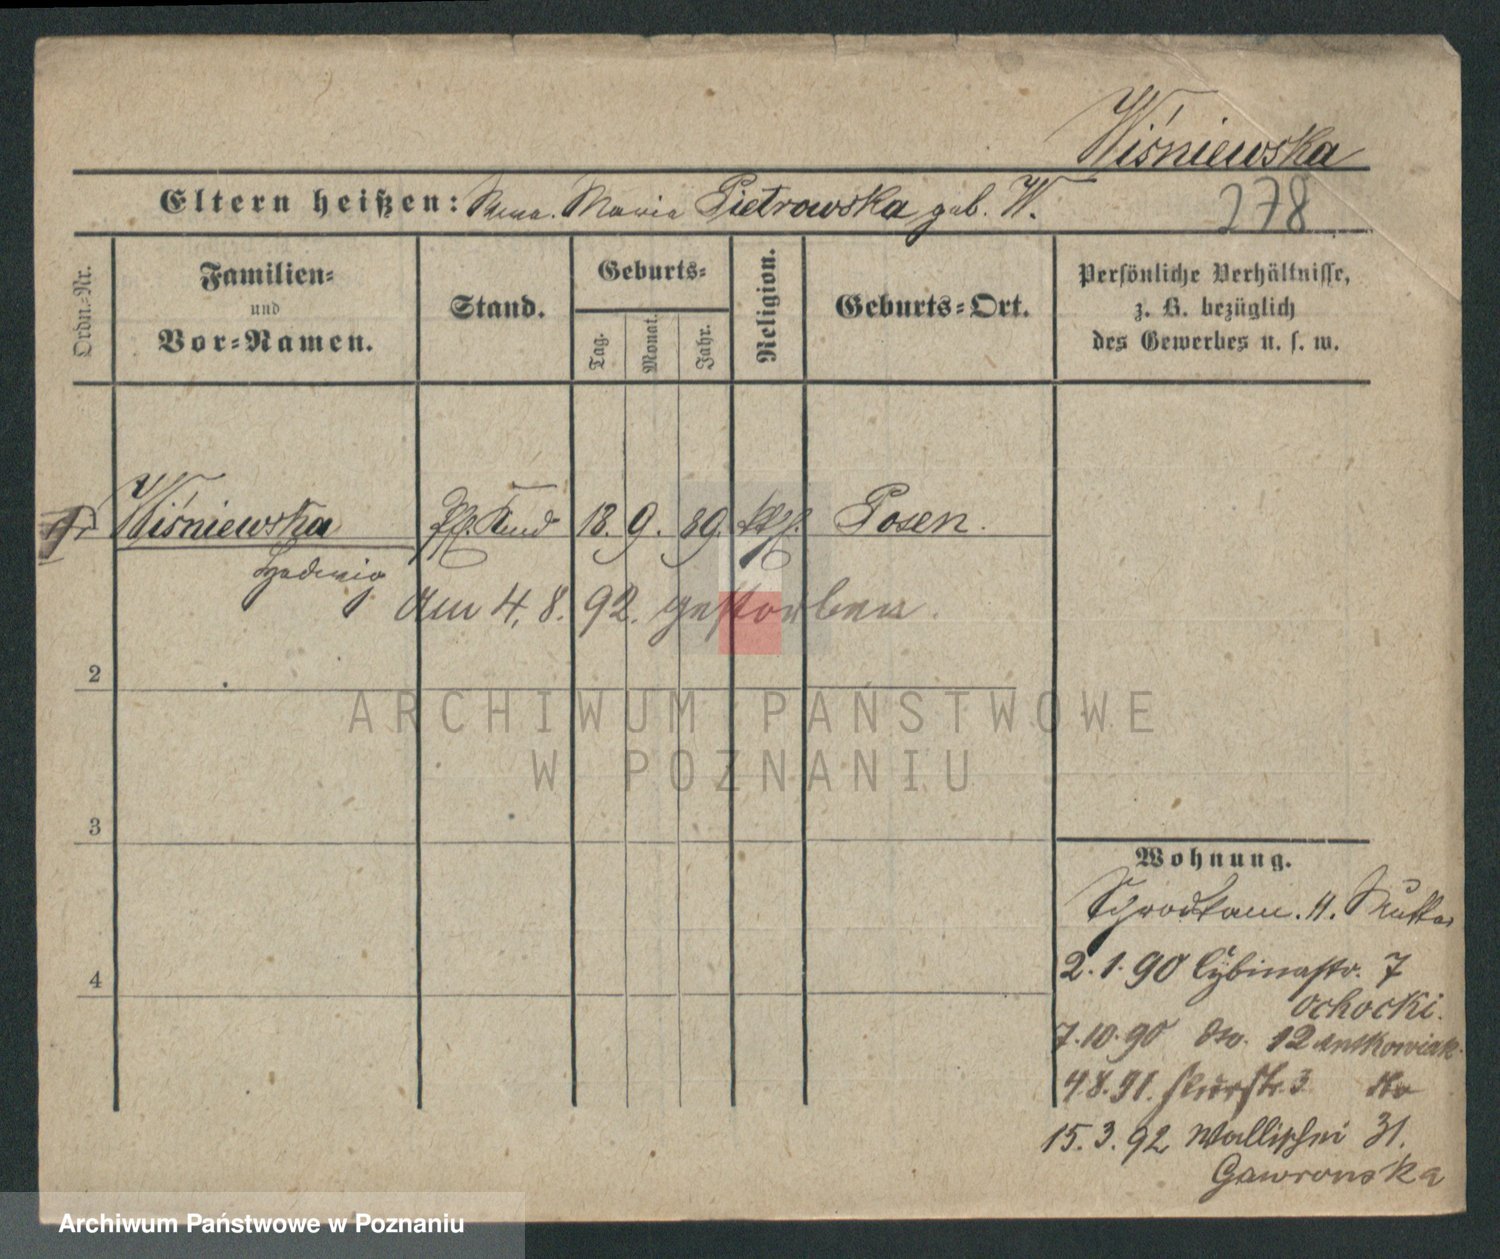 Wiśniewska
Eltern heißen: Maria Pietrowska geb. W.
278
Ordn.-Nr.
Familien-
und
Vor-Namen.
Stand.
Geburts-
Tag.
Monat.
Jahr.
Religion.
Geburts-Ort.
Persönliche Verhältnisse,
z. B. bezüglich
des Gewerbes u. s. w.
Wiśniewska Kind 18. 9. 89. kth. Posen.
Hedwig
Am 4. 8. 92. gestorben.
2
3
4
Wohnung.
Schrodkam. 11. Mutter
2.1.90 Cybinastr. 7
Ochocki.
7.10.90 do. 12 Antkowiak
4.8.91. 3 do
15.3.92 Wallischei 31.
Gawronska
ARCHIWUM PAŃSTWOWE
W POZNANIU
Archiwum Państwowe w Poznaniu